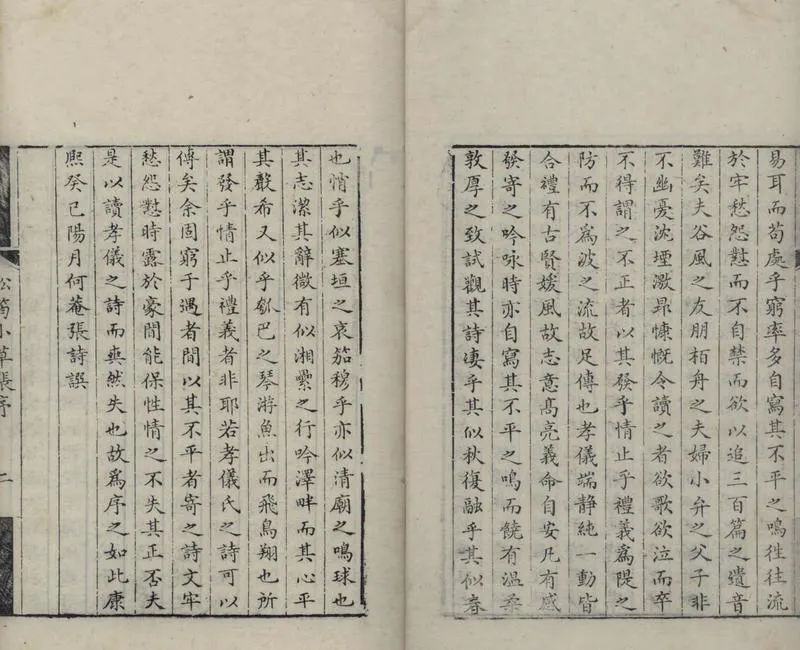 易耳而苟處乎窮率多自寫其不平之鳴徃徃流
於牢愁怨懟而不自禁而欲以追三百篇之遺音
難矣夫谷風之友朋栢舟之夫婦小弁之父子非
不幽憂沈堙激昻慷慨令讀之者欲歌欲泣而卒
不得謂之不正者以其發乎情止乎禮義爲隄之
防而不爲波之流故足傳也孝儀端静純一動皆
合禮有古賢媛風故志意髙亮義命自安凡有感
發寄之吟咏時亦自寫其不平之鳴而饒有温柔
敦厚之致試觀其詩凄乎其似秋復融乎其似春
也悄乎似塞垣之哀笳穆乎亦似清廟之鳴球也
其志潔其辭微有似湘纍之行吟澤畔而其心平
其聲希又似乎瓠巴之琴游魚出而飛鳥翔也所
謂發乎情止乎禮義者非耶若孝儀氏之詩可以
傳矣余固窮于遇者間以其不平者寄之詩文牢
愁怨懟時露於豪間能保性情之不失其正否夫
是以讀孝儀之詩而喪然失也故爲序之如此康
熙癸巳陽月何菴張詩譔
松筠小草張序
二